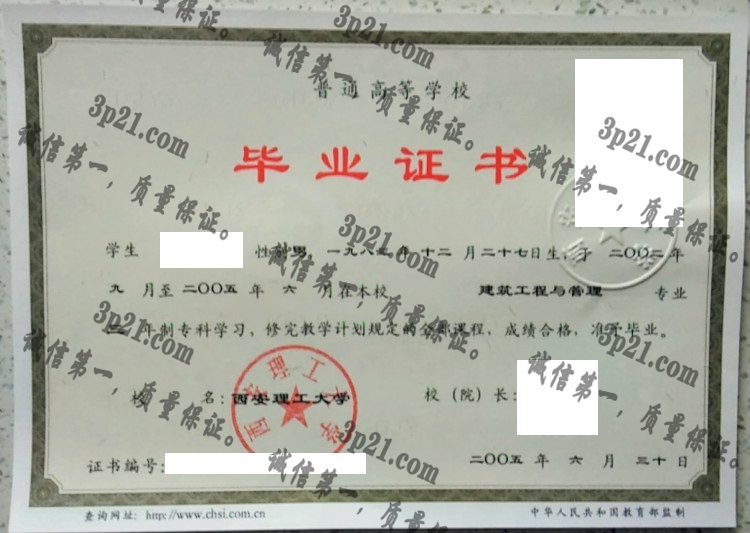 普通高等学校
毕业证书
学生 性别男，一九八 年 十二 月 二十七日生，于 二〇〇二年
九 月至 二〇〇五 年 六 月在本校 建筑工程与管理 专业
年制专科学习，修完教学计划规定的全部课程，成绩合格，准予毕业。
校 名：西安理工大学 校（院）长：
证书编号： 二〇〇五 年 六 月 三十日
查询网址：http://www.chsi.com.cn 中华人民共和国教育部监制
西安理工大学
3p21.com
诚信第一，质量保证。
3p21.com
诚信第一，质量保证。
3p21.com
诚信第一，质量保证。
3p21.com
诚信第一，质量保证。
3p21.com
诚信第一，质量保证。
3p21.com
诚信第一，质量保证。
3p21.com
诚信第一，质量保证。
3p21.com
诚信第一，质量保证。